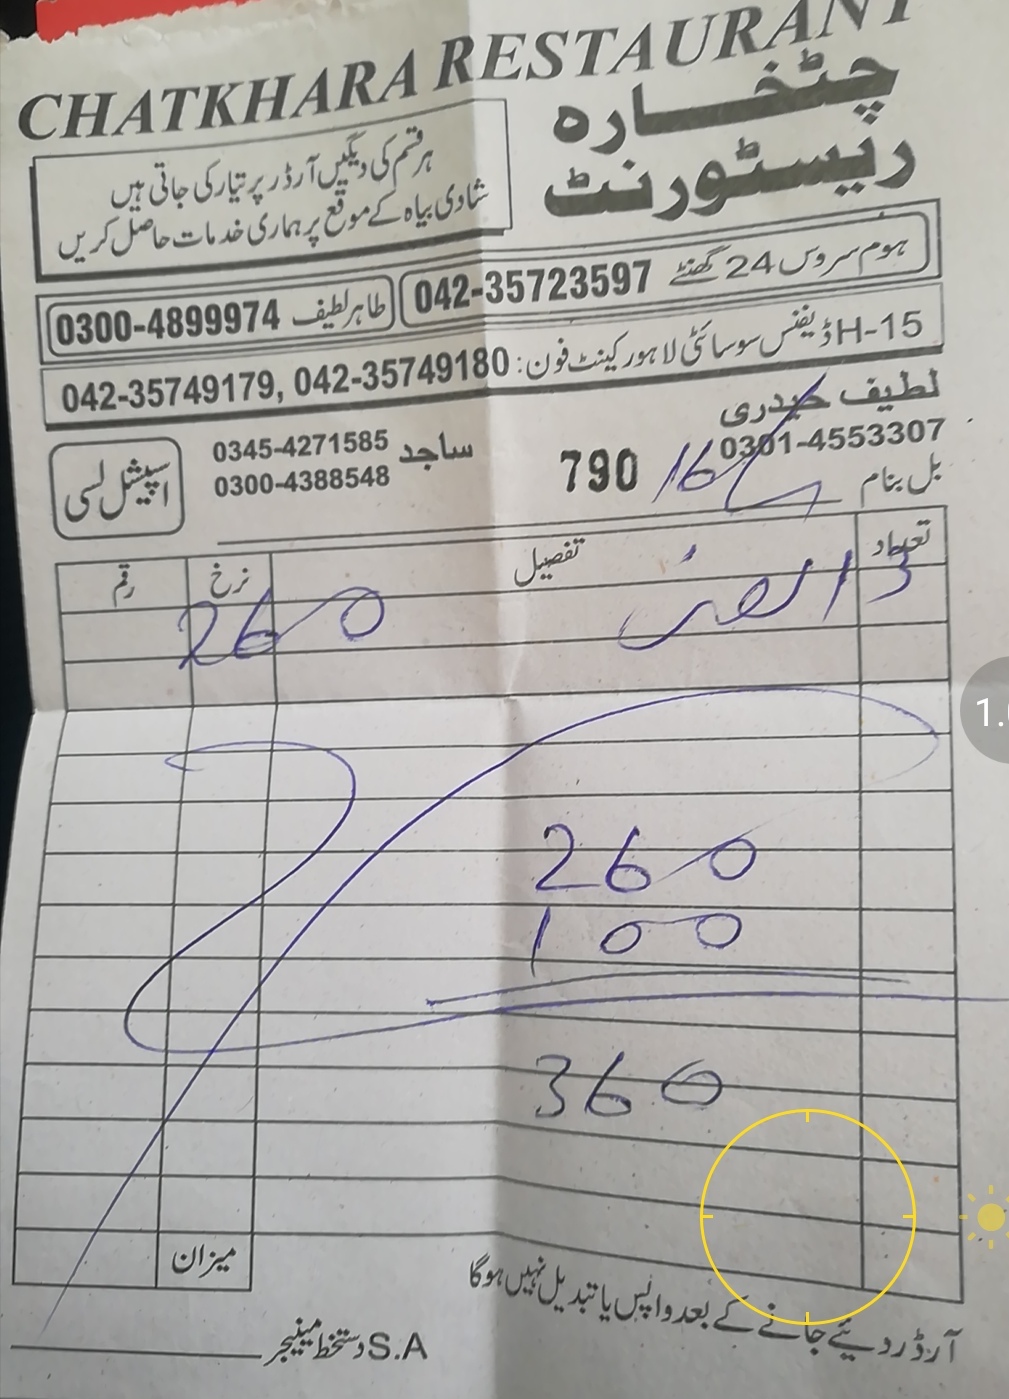 CHATKHARA RESTAURANT
چٹخارہ
ریسٹورنٹ
ہر قسم کی دیگیں آرڈر پر تیار کی جاتی ہیں
شادی بیاہ کے موقع پر ہماری خدمات حاصل کریں
ہوم سروس 24 گھنٹے 042-35723597
طاہر لطیف 0300-4899974
H-15 ڈیفنس سوسائٹی لاہور کینٹ فون: 042-35749179, 042-35749180
لطیف حیدری
0301-4553307
ساجد 0345-4271585
0300-4388548
اسپیشل لسی
790
16
بل بنام
تعداد تفصیل نرخ رقم
3 260
260
100
360
میزان
آرڈر دیئے جانے کے بعد واپس یا تبدیل نہیں ہوگا
S.A دستخط مینیجر
1.